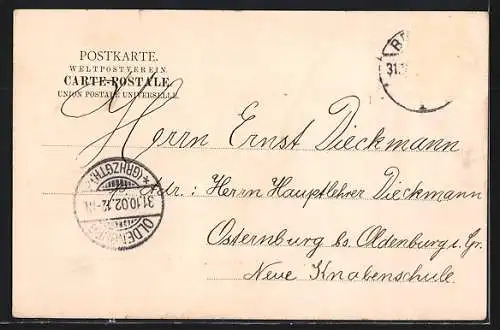 POSTKARTE.
WELTPOSTVEREIN.
CARTE-POSTALE
UNION POSTALE UNIVERSELLE.
31.
Herrn Ernst Dieckmann
Adr: Herrn Hauptlehrer Dieckmann
Osternburg bs Oldenburg i. Gr.
Neue Knabenschule.
OLDENBURG
31.10.02.
*(GRHZGTH.)